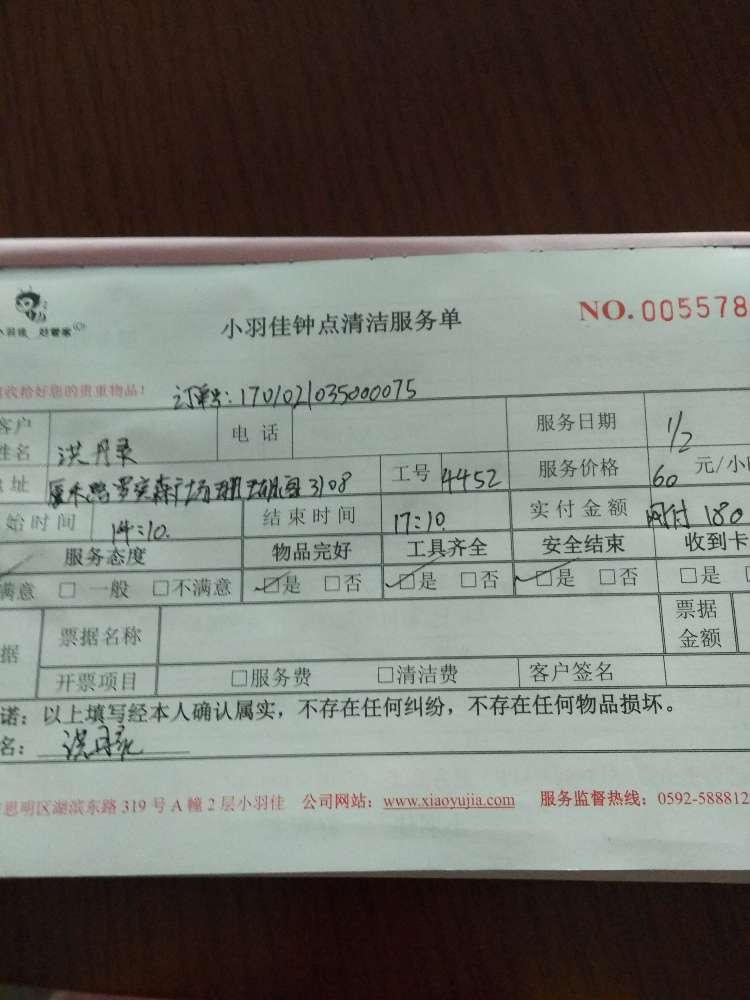 小羽佳 好管家
小羽佳钟点清洁服务单
NO. 005578
收拾好您的贵重物品!
订单号: 1701021035000075
客户姓名 洪丹 电话 服务日期 1/2
址 3108 工号 4452 服务价格 60 元/小
始时间 14:10. 结束时间 17:10. 实付金额 网付 180
服务态度 物品完好 工具齐全 安全结束 收到卡
满意 □ 一般 □不满意 □是 □否 □是 □否 □是 □否 □是
据 票据名称 票据金额
开票项目 □服务费 □清洁费 客户签名
诺: 以上填写经本人确认属实,不存在任何纠纷,不存在任何物品损坏。
名: 洪丹
思明区湖滨东路 319 号 A 幢 2 层小羽佳 公司网站: www.xiaoyujia.com 服务监督热线: 0592-588812